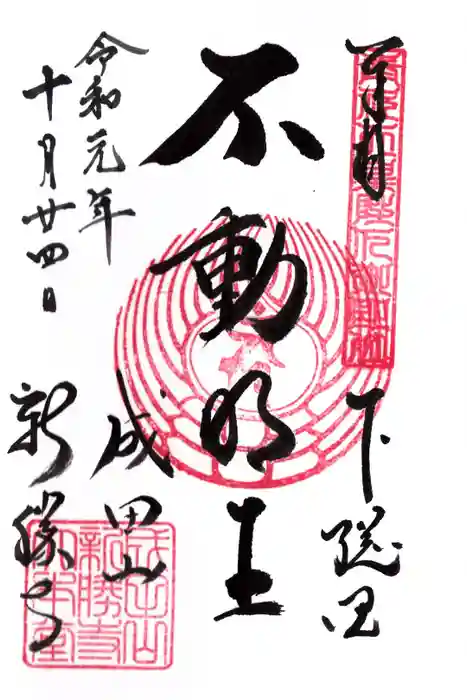 奉拝
下総国
不動明王
成田山
新勝寺
令和元年
十月廿四日
成田山新勝寺本堂